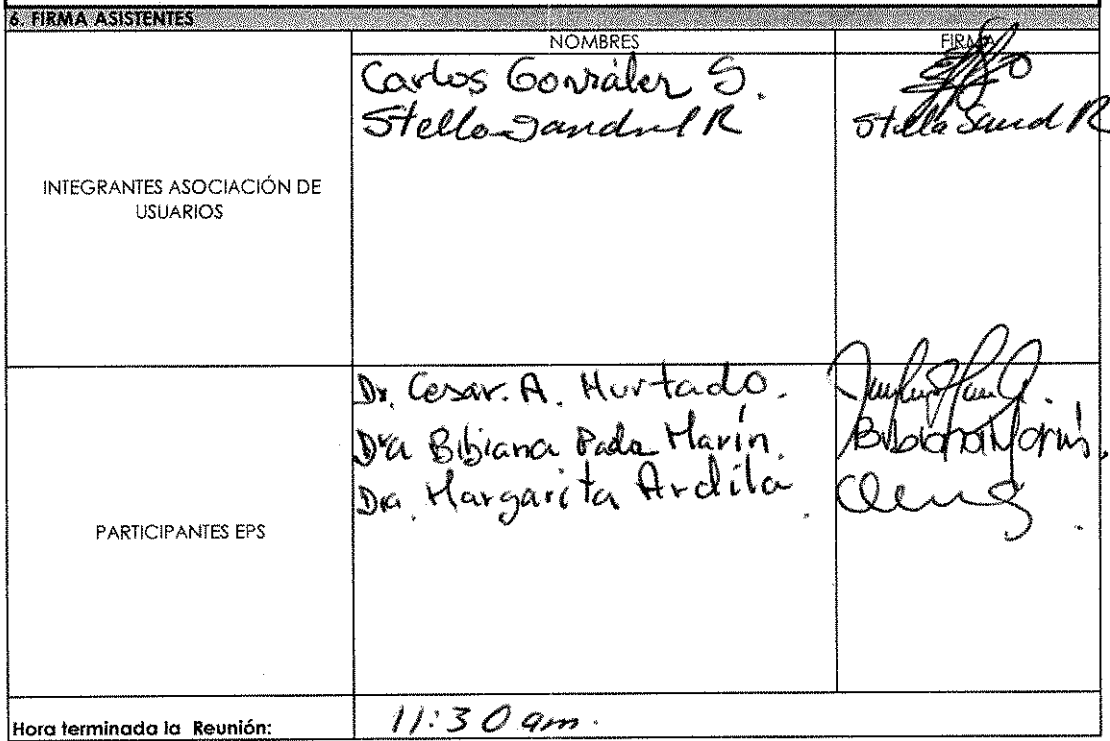 6. FIRMA ASISTENTES
NOMBRES
FIRMA
INTEGRANTES ASOCIACIÓN DE
USUARIOS
Carlos González S.
Stella R
Stella R
PARTICIPANTES EPS
Dr. Cesar. A. Hurtado.
Dra Bibiana Marín.
Dra. Margarita Ardila
Bibiana Marín.
Hora terminada la Reunión:
11:30 am.